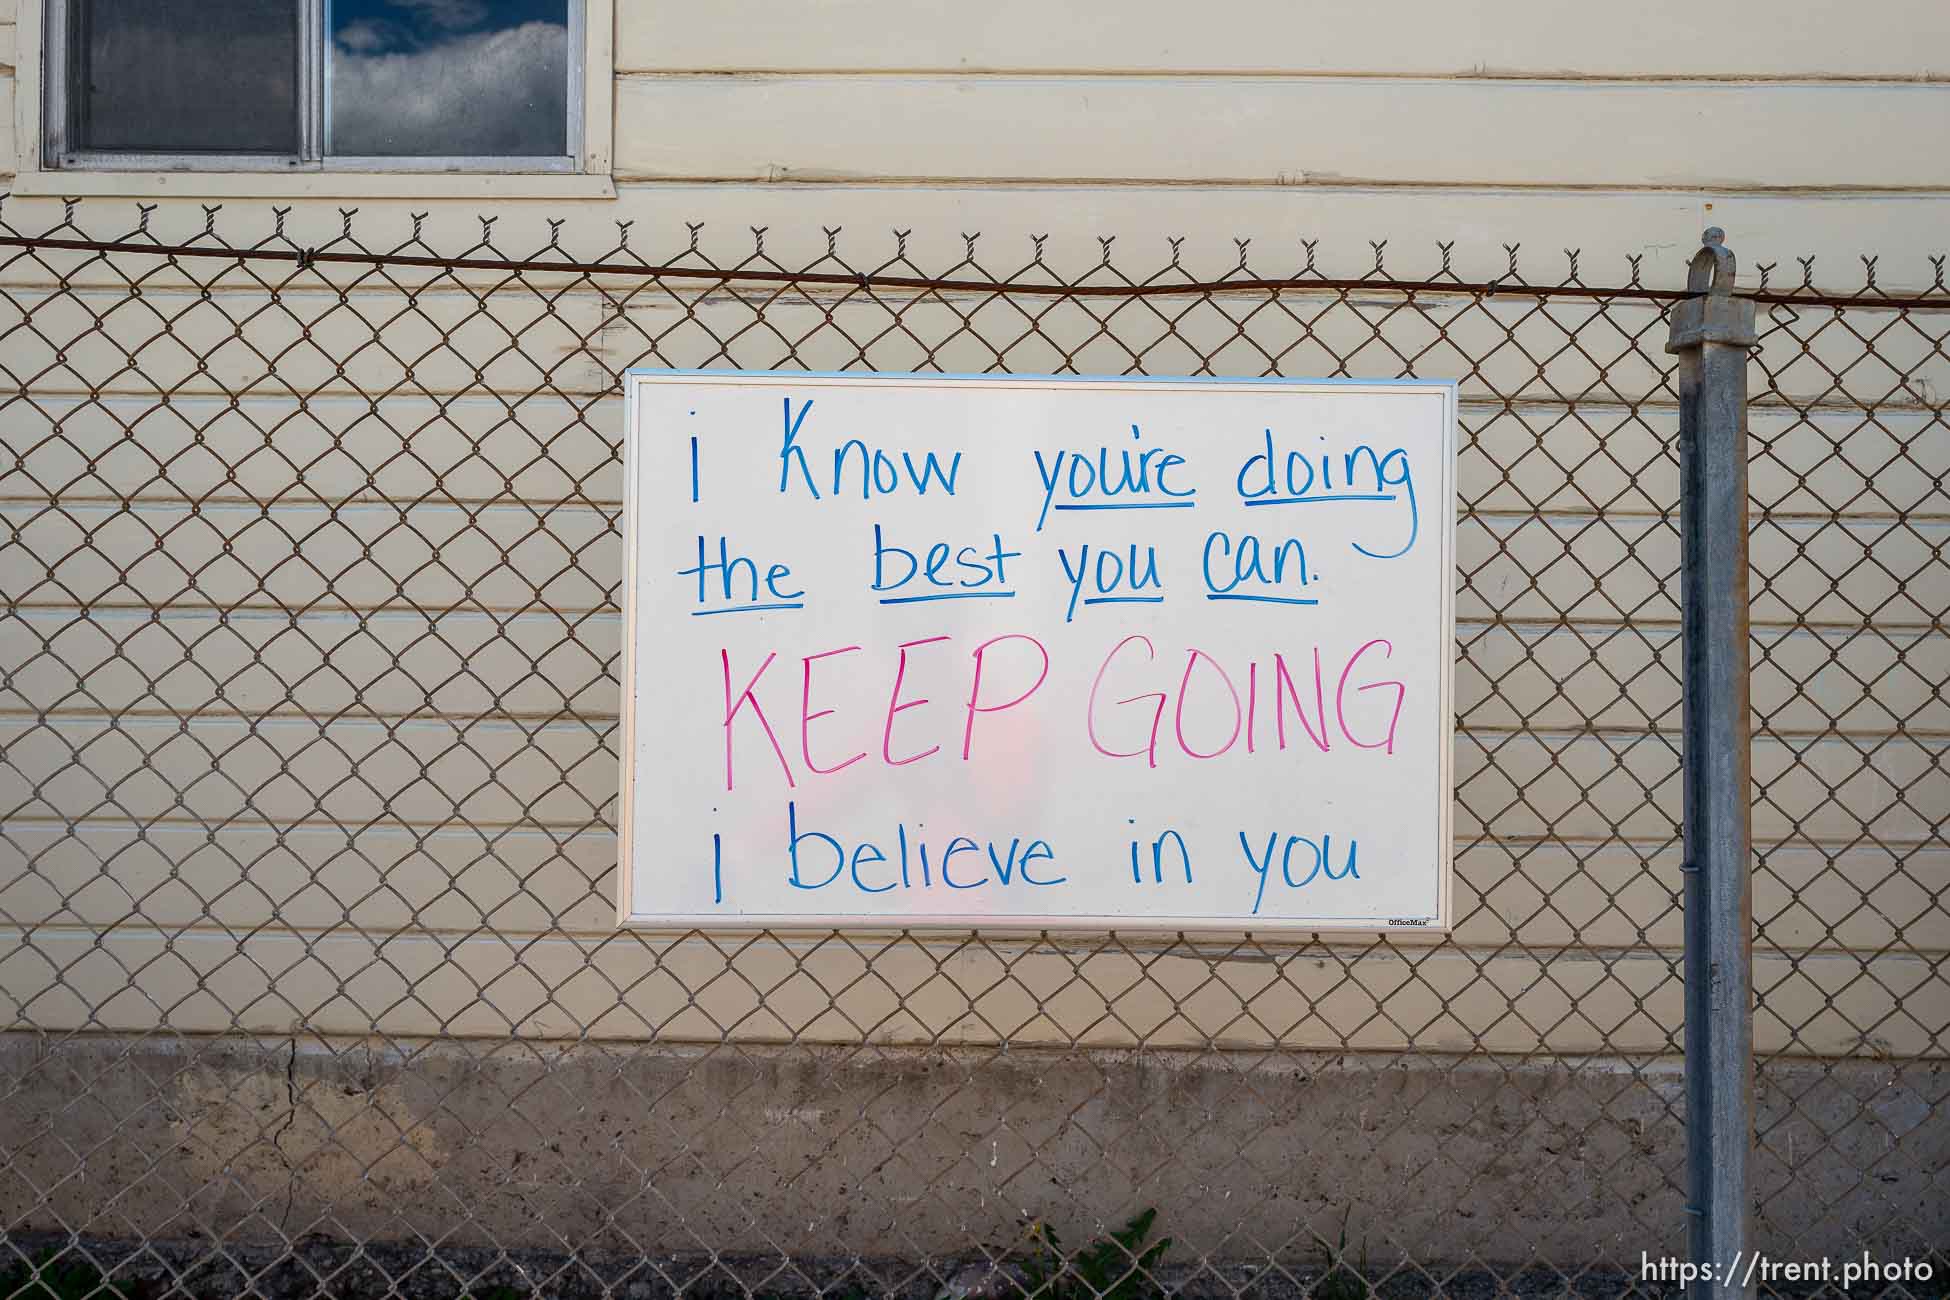 i Know you're doing
the best you can.
KEEP GOING
i believe in you
OfficeMax
https://trent.photo